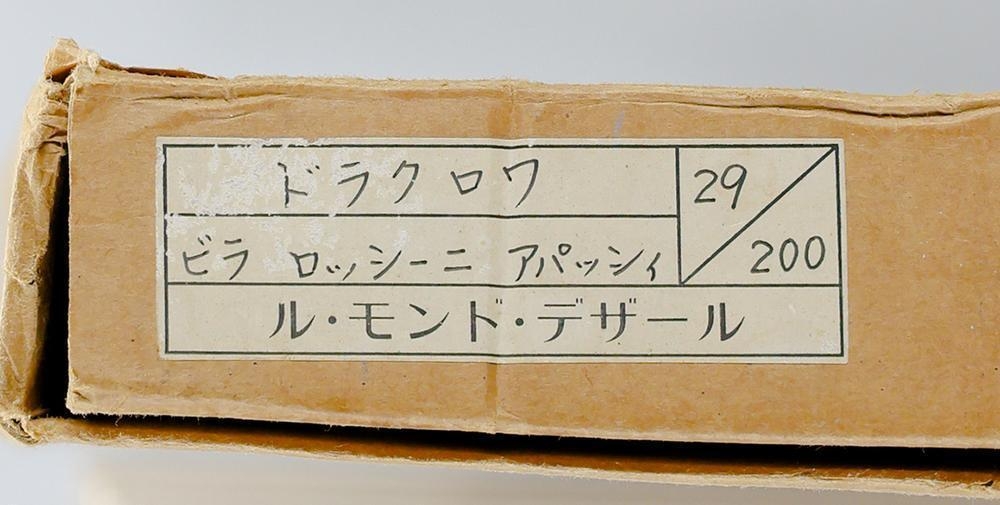 ドラクロワ
29/200
ビラ ロッシーニ アパッシィ
ル・モンド・デザール